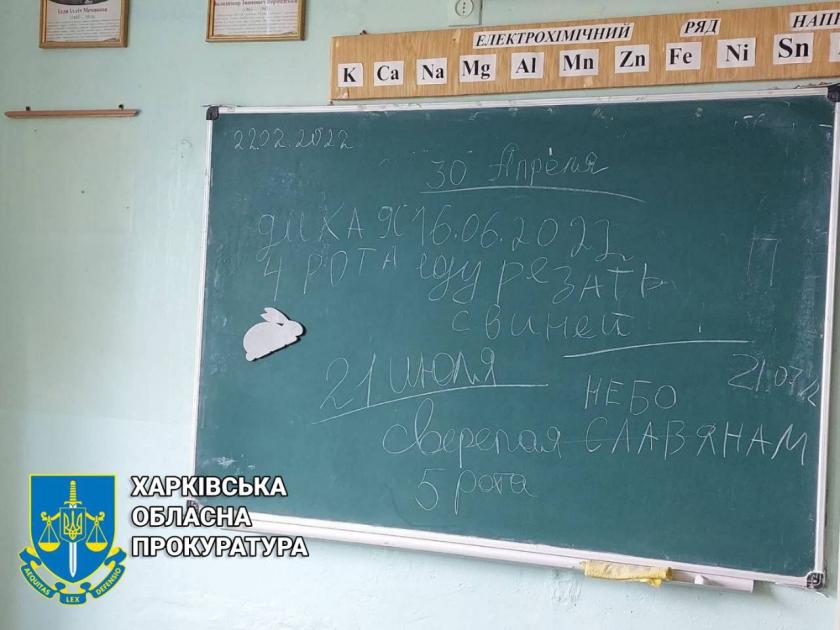 Ілля Ілліч Мечников
Володимир Іванович Вернадський
ЕЛЕКТРОХІМІЧНИЙ РЯД НАП
K Ca Na Mg Al Mn Zn Fe Ni Sn
22.02.2022
30 Апреля
дикая 16.06.2022
4 РОТА еду резать
свиней
21 июля
21.07.2
НЕБО
свирепая СЛАВЯНАМ
5 рота
ХАРКІВСЬКА
ОБЛАСНА
ПРОКУРАТУРА
AEQUITAS LEX DEFENSIO